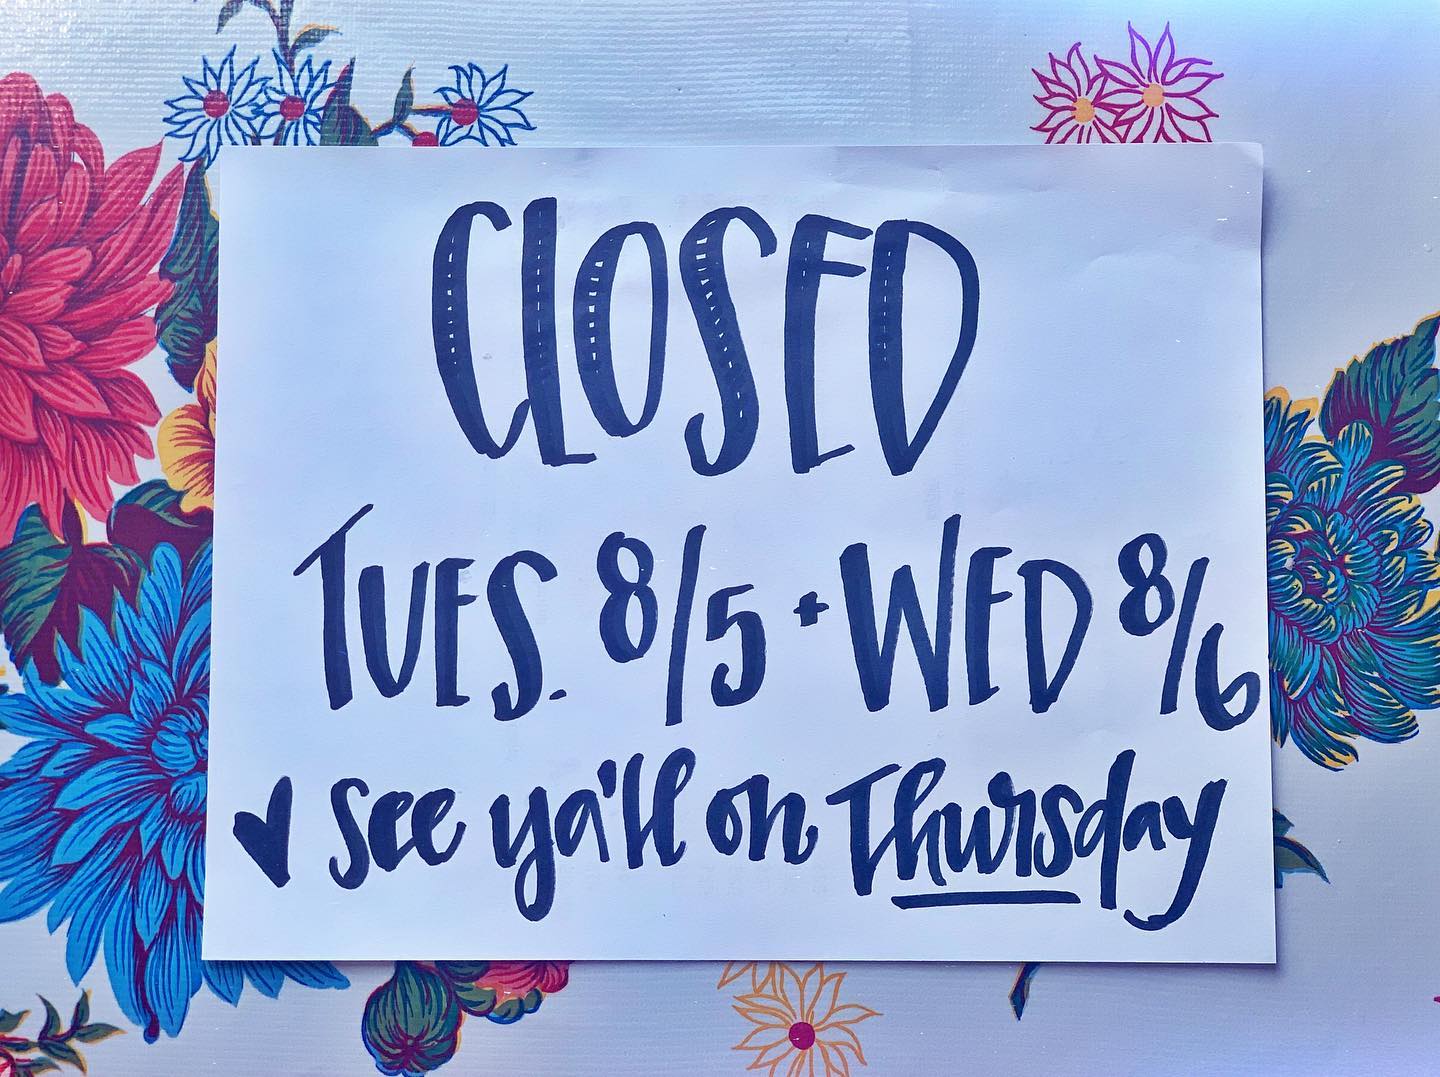 CLOSED
TUES. 8/5 + WED 8/6
♥ See ya'll on Thursday